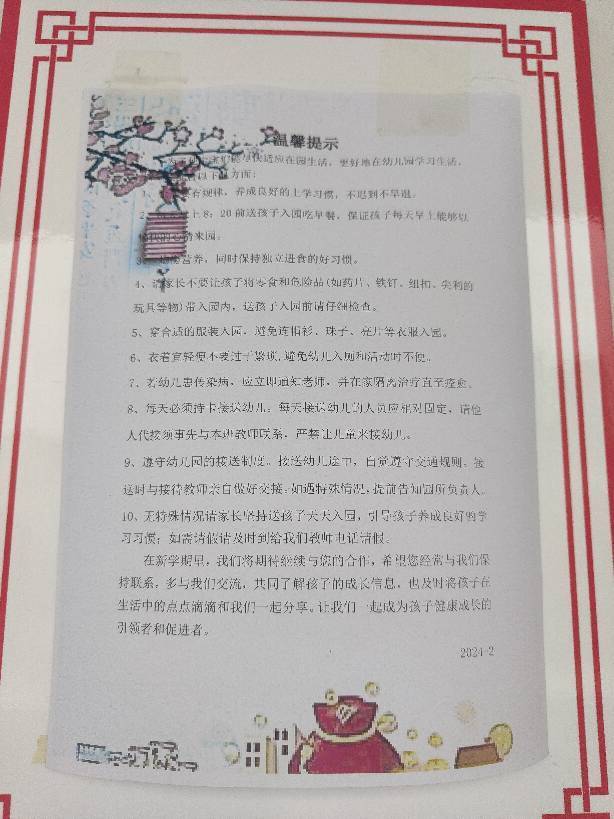 温馨提示
适应在园生活，更好地在幼儿园学习生活，
以下 方面：
有规律，养成良好的上学习惯，不迟到不早退。
2 上8：20前送孩子入园吃早餐，保证孩子每天早上能够以
来园。
营养，同时保持独立进食的好习惯。
4、请家长不要让孩子将零食和危险品(如药片、铁钉、纽扣、尖利的
玩具等物)带入园内，送孩子入园前请仔细检查。
5、穿合适的服装入园，避免连帽衫、珠子、亮片等衣服入园。
6、衣着宜轻便不要过于繁琐,避免幼儿入厕和活动时不便。
7、若幼儿患传染病，应立即通知老师，并在家隔离治疗直至痊愈。
8、每天必须持卡接送幼儿。每天接送幼儿的人员应相对固定，请他
人代接须事先与本班教师联系，严禁让儿童来接幼儿。
9、遵守幼儿园的接送制度。接送幼儿途中，自觉遵守交通规则。接
送时与接待教师亲自做好交接,如遇特殊情况,提前告知园所负责人。
10、无特殊情况请家长坚持送孩子天天入园，引导孩子养成良好的学
习习惯；如需请假请及时到给我们教师电话请假。
在新学期里，我们将期待继续与您的合作，希望您经常与我们保
持联系，多与我们交流，共同了解孩子的成长信息，也及时将孩子在
生活中的点点滴滴和我们一起分享。让我们一起成为孩子健康成长的
引领者和促进者。
2024-2